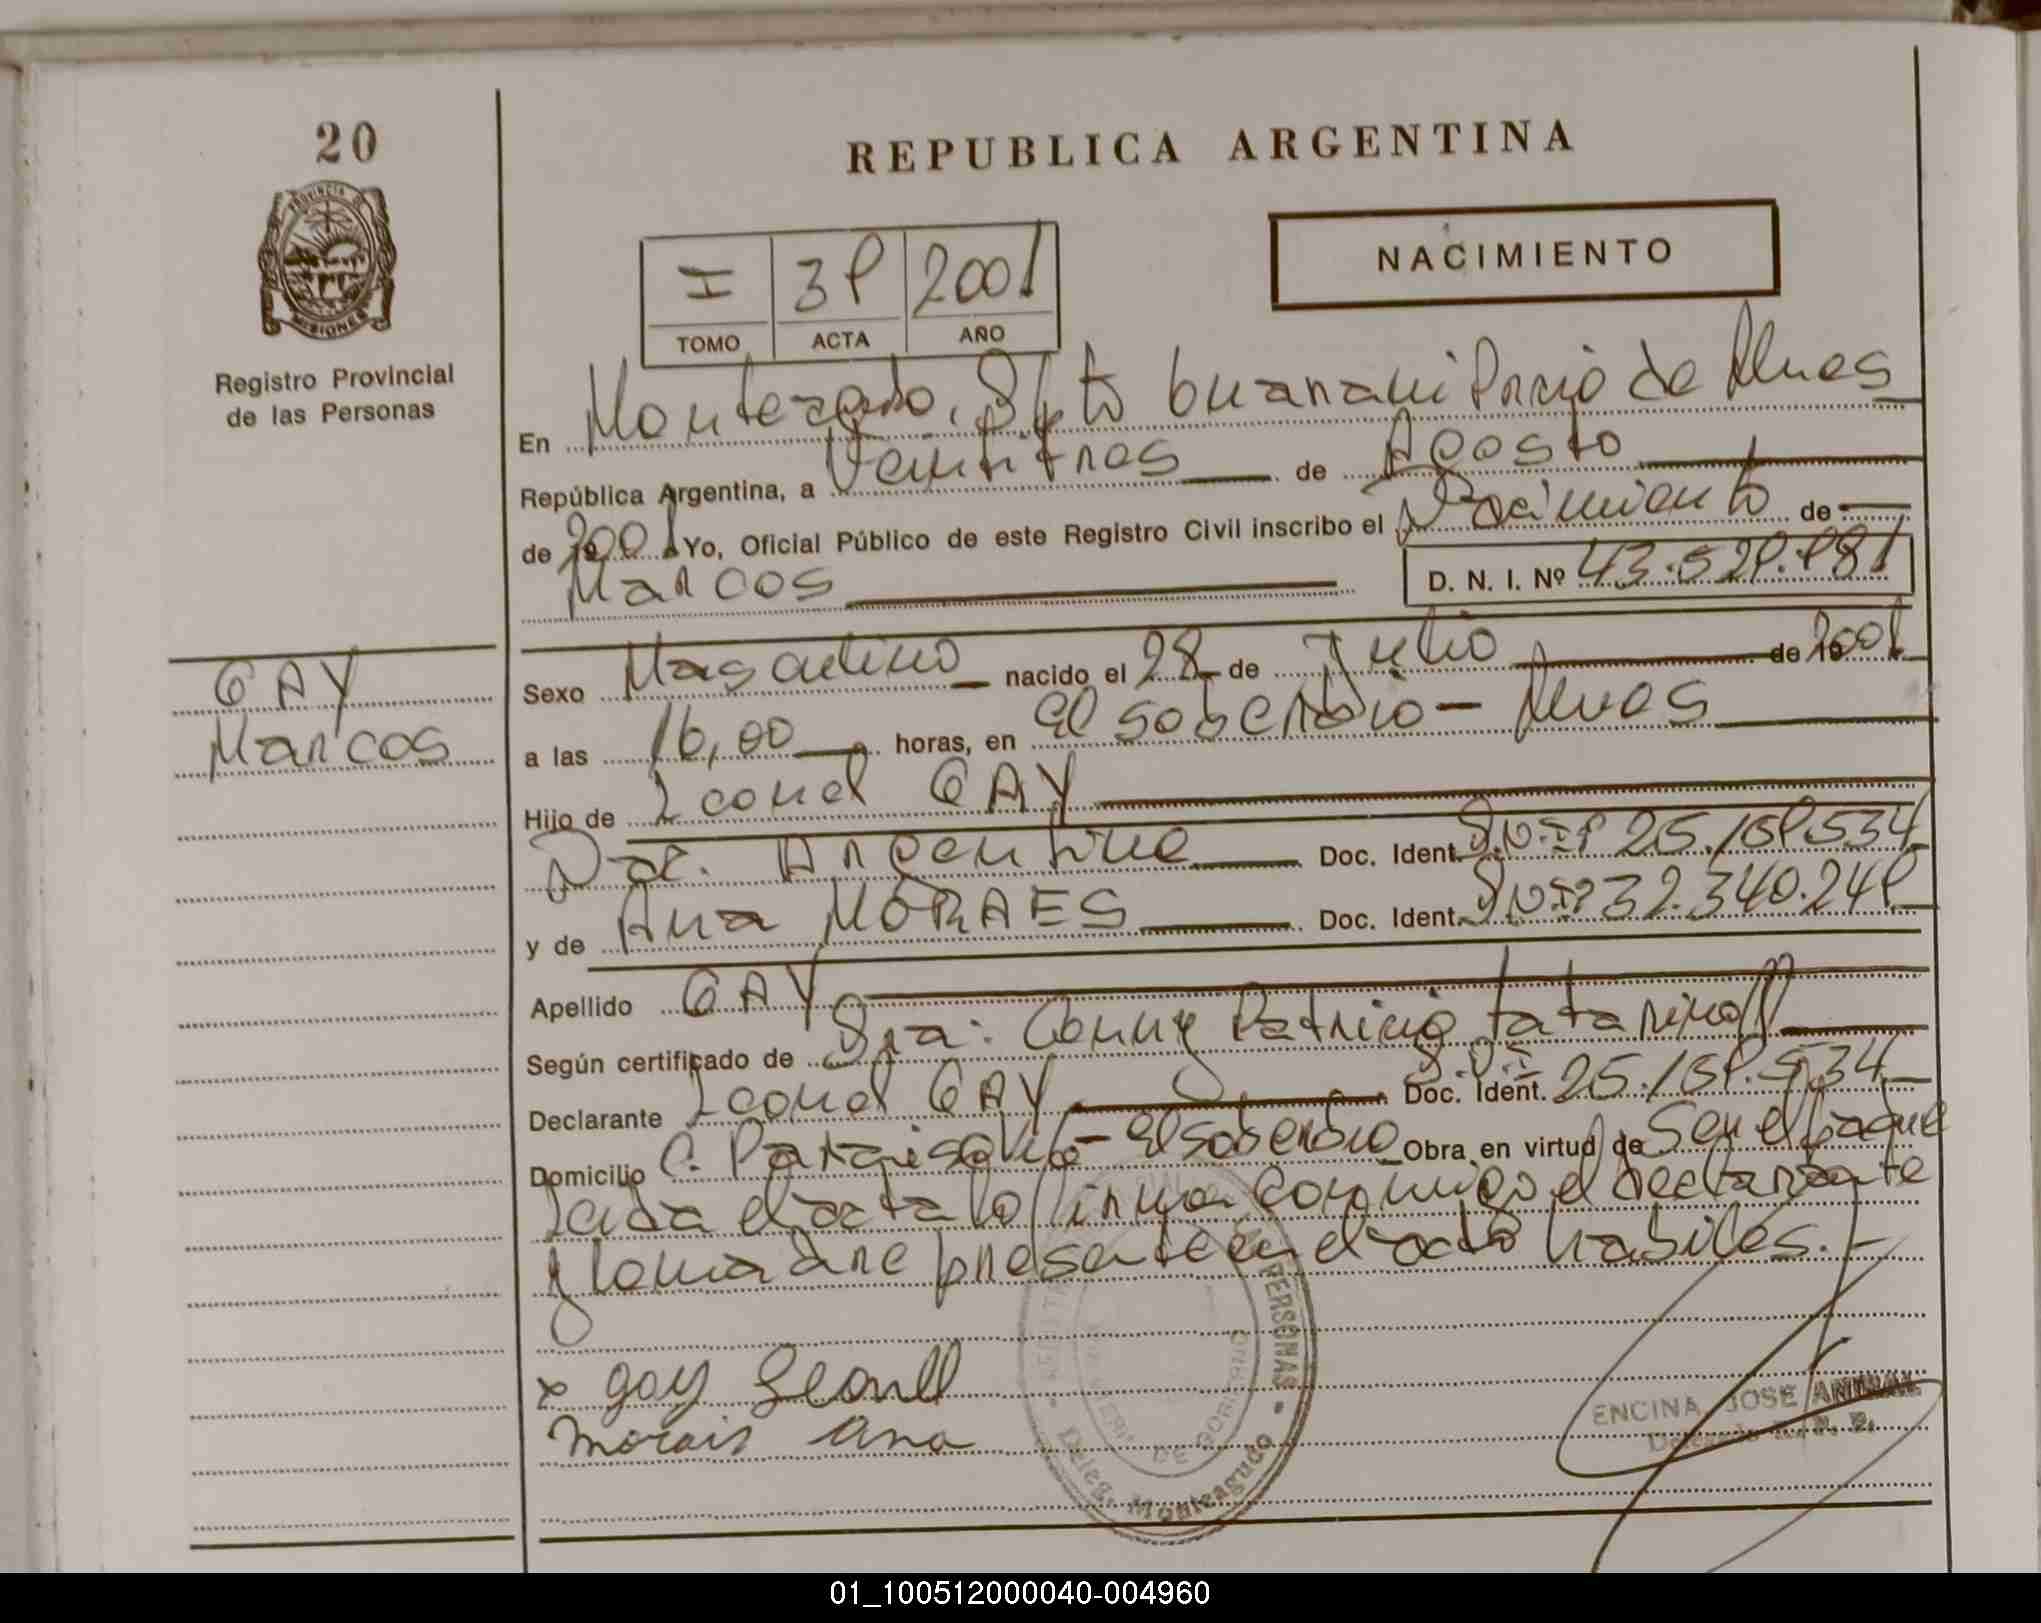 20
REPUBLICA ARGENTINA
PROVINCIA D
MISIONES
Registro Provincial
de las Personas
NACIMIENTO
I 39 2001
TOMO ACTA AÑO
En Monteagudo, Dpto Guarani Prcia de Mnes
República Argentina, a Veintitres de Agosto
de 2001 Yo, Oficial Público de este Registro Civil inscribo el Nacimiento de
Marcos D. N. I. Nº 43.529.981
GAY
Marcos
Sexo Masculino nacido el 28 de Julio de 2001
a las 16,00 horas, en El Soberbio - Mnes
Hijo de Leonel GAY
Nac. Argentina Doc. Ident. DNI Nº 25.159.534
y de Ana MORAES Doc. Ident. DNI Nº 32.340.249
Apellido GAY
Según certificado de Dra: Conny Patricia Tatarinoff
Declarante Leonel GAY Doc. Ident. D.N.I 25.159.534
Domicilio C. Paraisolito - El Soberbio Obra en virtud de Ser el padre
Leida el acta lo firma conmigo el declarante
y la madre presente en el acto habiles.-
x gay Leonell
morais ana
PERSONAS
DE GOBIERNO
Deleg. Monteagudo
ENCINA JOSE ANIBAL
Delegado R. P. P.
01_100512000040-004960